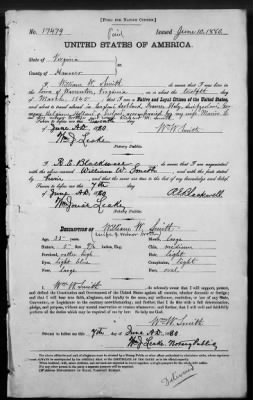 [FORM FOR NATIVE CITIZEN.]
No. 17479 Paid Issued June 10. 1880.
UNITED STATES OF AMERICA.
State of Virginia
County of Hanover
I, William W. Smith do swear that I was born in the
town of Warrenton, Virginia on the twelfth day
of March, 1845; that I am a Native and Loyal Citizen of the United States,
and about to travel abroad in England Scotland France Italy Switzerland Ger-
many Belgium Holland & Ireland accompanied by my wife
Sworn to before me this
of June A.D. 1880 W W Smith
Wm J Leake
Notary Public.
I, R. E. Blackwell, do swear that I am acquainted
with the above-named William W. Smith and with the
facts stated by him, and that the same are true to the best of my knowledge and belief.
Sworn to before me this 7th day
of June A.D. 1880 R E Blackwell
Notary Public.
DESCRIPTION OF William W. Smith
Age: 35 years. Mouth: large
Stature: 5 feet inches, Eng. Chin: medium
Forehead: rather high Hair: light
Eyes: light blue Complexion: light
Nose: large Face: oval
I, Wm W. Smith do solemnly swear that I will support, protect,
and defend the Constitution and Government of the United States against all enemies, whether domestic or foreign;
and that I will bear true faith, allegiance, and loyalty to the same, any ordinance, resolution, or law of any State,
Convention, or Legislature to the contrary notwithstanding; and further, that I do this with a full determination,
pledge, and purpose, without any mental reservation or evasion whatsoever; and further, that I will well and faithfully
perform all the duties which may be required of me by law: So help me God.
Wm W. Smith
Sworn to before me this 7th day June A.D. 1880
Wm J Leake Notary Public
Delivered